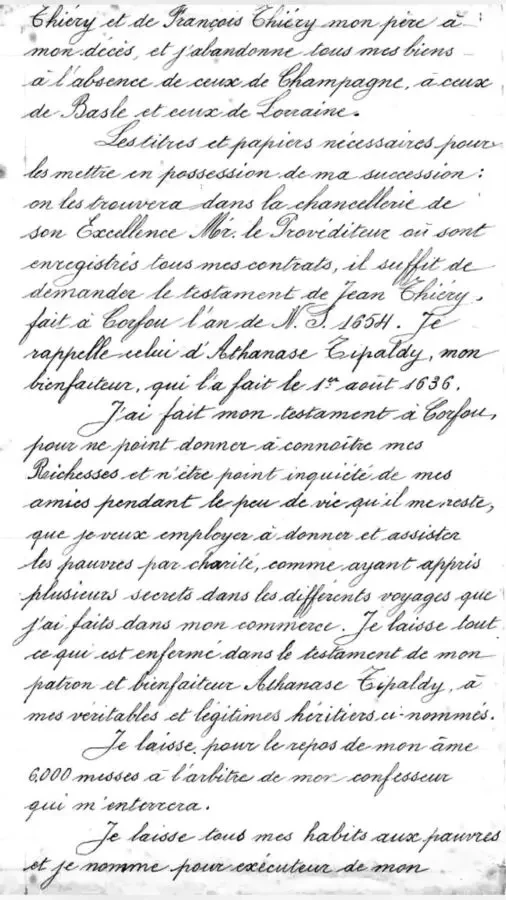 Thiéry et de François Thiéry mon père à
mon décès, et j'abandonne tous mes biens
à l'absence de ceux de Champagne, à ceux
de Basle et ceux de Lorraine.
Les titres et papiers nécessaires pour
les mettre en possession de ma succession :
on les trouvera dans la chancellerie de
son Excellence Mr. le Provéditeur où sont
enregistrés tous mes contrats, il suffit de
demander le testament de Jean Thiéry,
fait à Corfou l'an de N. S. 1654. Je
rappelle celui d'Athanase Tipaldy, mon
bienfaiteur, qui l'a fait le 1er août 1636.
J'ai fait mon testament à Corfou,
pour ne point donner à connoître mes
Richesses et n'être point inquiété de mes
amies pendant le peu de vie qu'il me reste,
que je veux employer à donner et assister
les pauvres par charité, comme ayant appris
plusieurs secrets dans les différents voyages que
j'ai faits dans mon commerce. Je laisse tout
ce qui est enfermé dans le testament de mon
patron et bienfaiteur Athanase Tipaldy, à
mes véritables et légitimes héritiers ci-nommés.
Je laisse pour le repos de mon âme
6,000 messes à l'arbitre de mon confesseur
qui m'enterrera.
Je laisse tous mes habits aux pauvres
et je nomme pour exécuteur de mon